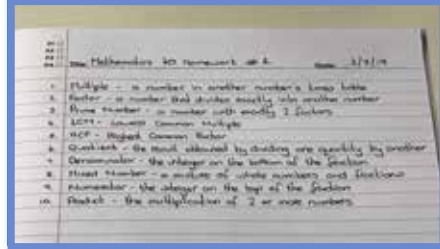 Mathematics Homework
1. Multiple - a number in another number's times table
2. Factor - a number that divides exactly into another number
3. Prime Number - a number with exactly 2 factors
4. LCM - Lowest Common Multiple
5. HCF - Highest Common Factor
6. Quotient - the result obtained by dividing one quantity by another
7. Denominator - the integer on the bottom of the fraction
8. Mixed Number - a mixture of whole numbers and fractions
9. Numerator - the integer on the top of the fraction
10. Product - the multiplication of 2 or more numbers